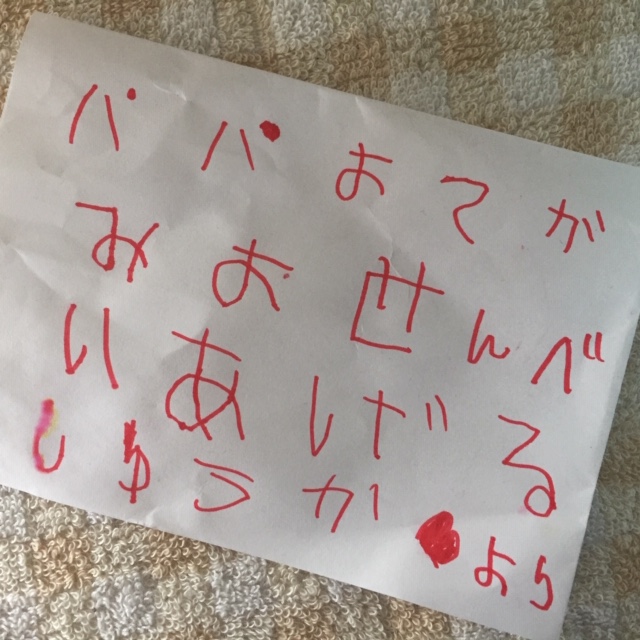 パパおてが
みおせんべ
いあげる
しゅうか♥より